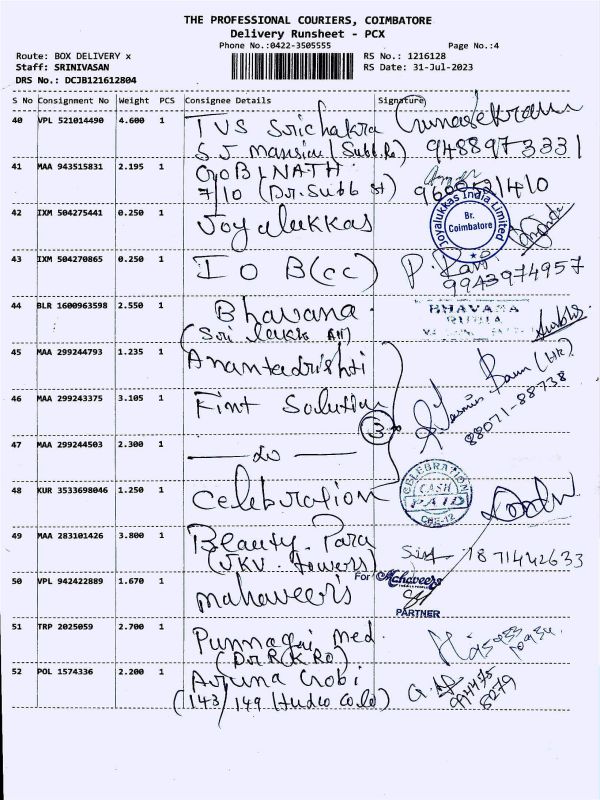 THE PROFESSIONAL COURIERS, COIMBATORE
Delivery Runsheet - PCX
Phone No.:0422-3505555 Page No.:4
Route: BOX DELIVERY x RS No.: 1216128
Staff: SRINIVASAN RS Date: 31-Jul-2023
DRS No.: DCJB121612804
S No Consignment No Weight PCS Consignee Details Signature
40 VPL 521014490 4.600 1 TVS Srichakra Gunasekaran
S J Mansion (Subb. Ro) 9488973331
41 MAA 943515831 2.195 1 GOBINATH
7/10 (Dr. Subb st)
42 IXM 504275441 0.250 1 Joyalukkas
Joyalukkas India Limited
Br.
Coimbatore
43 IXM 504270865 0.250 1 I O B (cc) P. Ravi
9943974957
44 BLR 1600963598 2.550 1 Bhavana
BHAVANA
STUDIO
45 MAA 299244793 1.235 1 Anantadrishti
(HR)
88071-88738
46 MAA 299243375 3.105 1 Fint Solution
3
47 MAA 299244503 2.300 1 do
48 KUR 3533698046 1.250 1 Celebration
CELEBRATION
CASH
PAID
CBE-12
49 MAA 283101426 3.800 1 Beauty Para
(JKV. Towers) 1871442633
50 VPL 942422889 1.670 1 mahaveer's
For Mahaveers
PARTNER
51 TRP 2025059 2.700 1 Punnagai med.
(Dr R K RO)
52 POL 1574336 2.200 1 Aruna Gobi
(143/149 Hudco Colo)